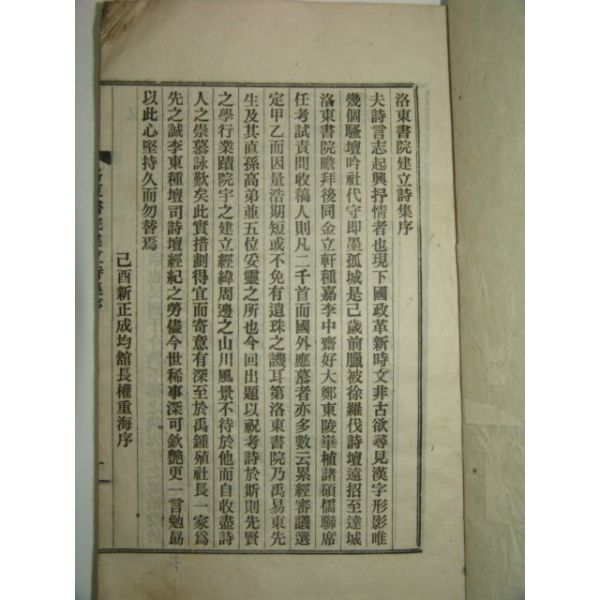 洛東書院建立詩集序
夫詩言志起興抒情者也現下國政革新時文非古欲尋見漢字形影唯
幾個騷壇吟社代守即墨孤城是己歲前臘被徐羅伐詩壇遠招至達城
洛東書院瞻拜後同金立軒種嘉李中齋好大鄭東陵畢植諸碩儒聯席
任考試責問收稿人則凡二千首而國外應慕者亦多數云累經審議選
定甲乙而因量浩期短或不免有遺珠之譏耳第洛東書院乃禹易東先
生及其直孫高弟並五位妥靈之所也今回出題以祝考詩於斯則先賢
之學行業蹟院宇之建立經緯周邊之山川風景不待於他而自收盡詩
人之崇慕詠歎矣此實措劃得宜而寄意有深至於禹鍾殖社長一家為
先之誠李東種壇司詩壇經紀之勞儘今世稀事深可欽艶更一言勉勗
以此心堅持久而勿替焉
己酉新正成均舘長權重海序
洛東書院建立詩集序
一